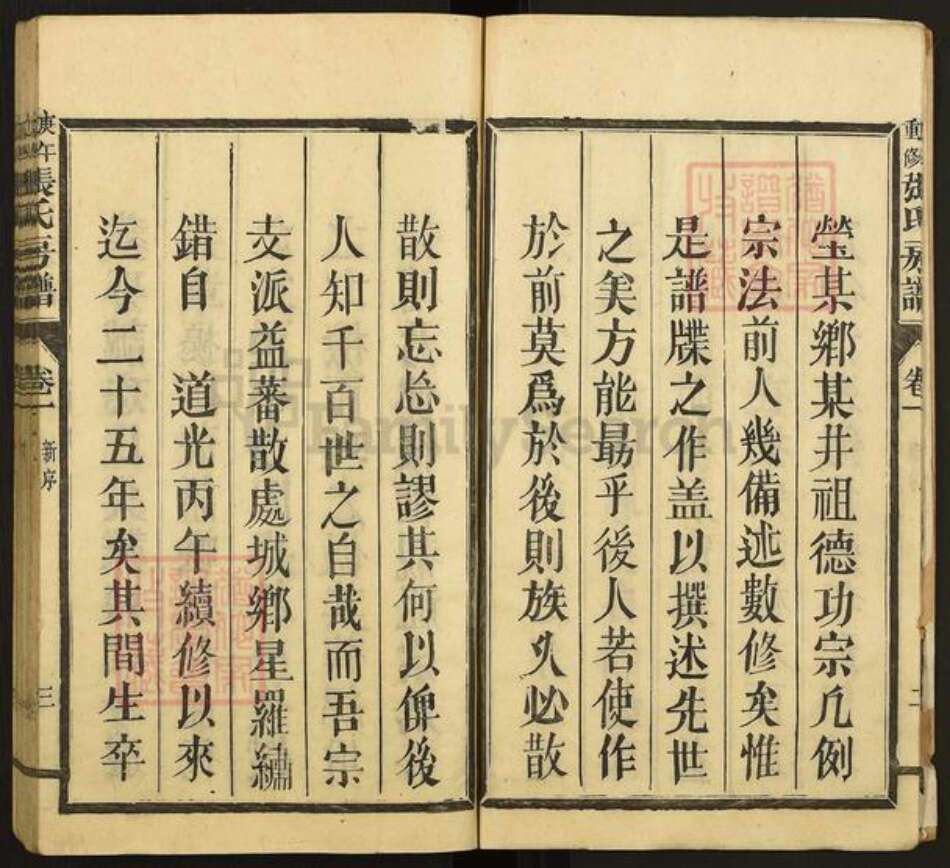 瑩某鄉某井祖德功宗凡例
宗法前人幾備述數修矣惟
是譜牒之作盖以撰述先世
之美方能勗乎後人若使作
於前莫爲於後則族乆必散
散則忘忘則謬其何以俾後
人知千百世之自哉而吾宗
支派益蕃散處城鄉星羅繡
錯自　道光丙午續修以來
迄今二十五年矣其間生卒
重修張氏房譜
卷一
二
庚午張氏房譜
卷一
新序
三
FamilySearch